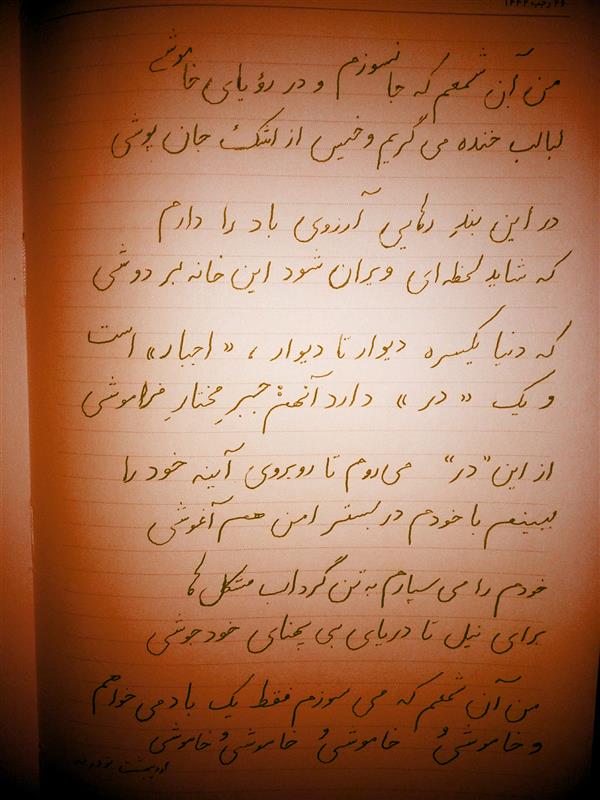 ۲۶ رجب ۱۴۴۲
من آن شمعم که جانسوزم و در رؤیای خاموشی
لبالب خنده می گریم و خیس از اشک جان پوشی
در این بندِ رهایی آرزوی باد را دارم
که شاید لحظه‌ای ویران شود این خانه بر دوشی
که دنیا یکسره دیوار تا دیوار ، «اجبار» است
و یک «در» دارد آنهم جبرِ مختارِ فراموشی
از این "در" می‌روم تا روبروی آینه خود را
ببینم با خودم در بستر امن هم آغوشی
خودم را می سپارم به تن گرداب مشکل ها
برای نیل تا دریای بی پهنای خودجوشی
من آن شمعم که می سوزم فقط یک باد می خواهم
و خاموشیُ خاموشیُ خاموشیُ خاموشی
اردیبهشت نود و نه